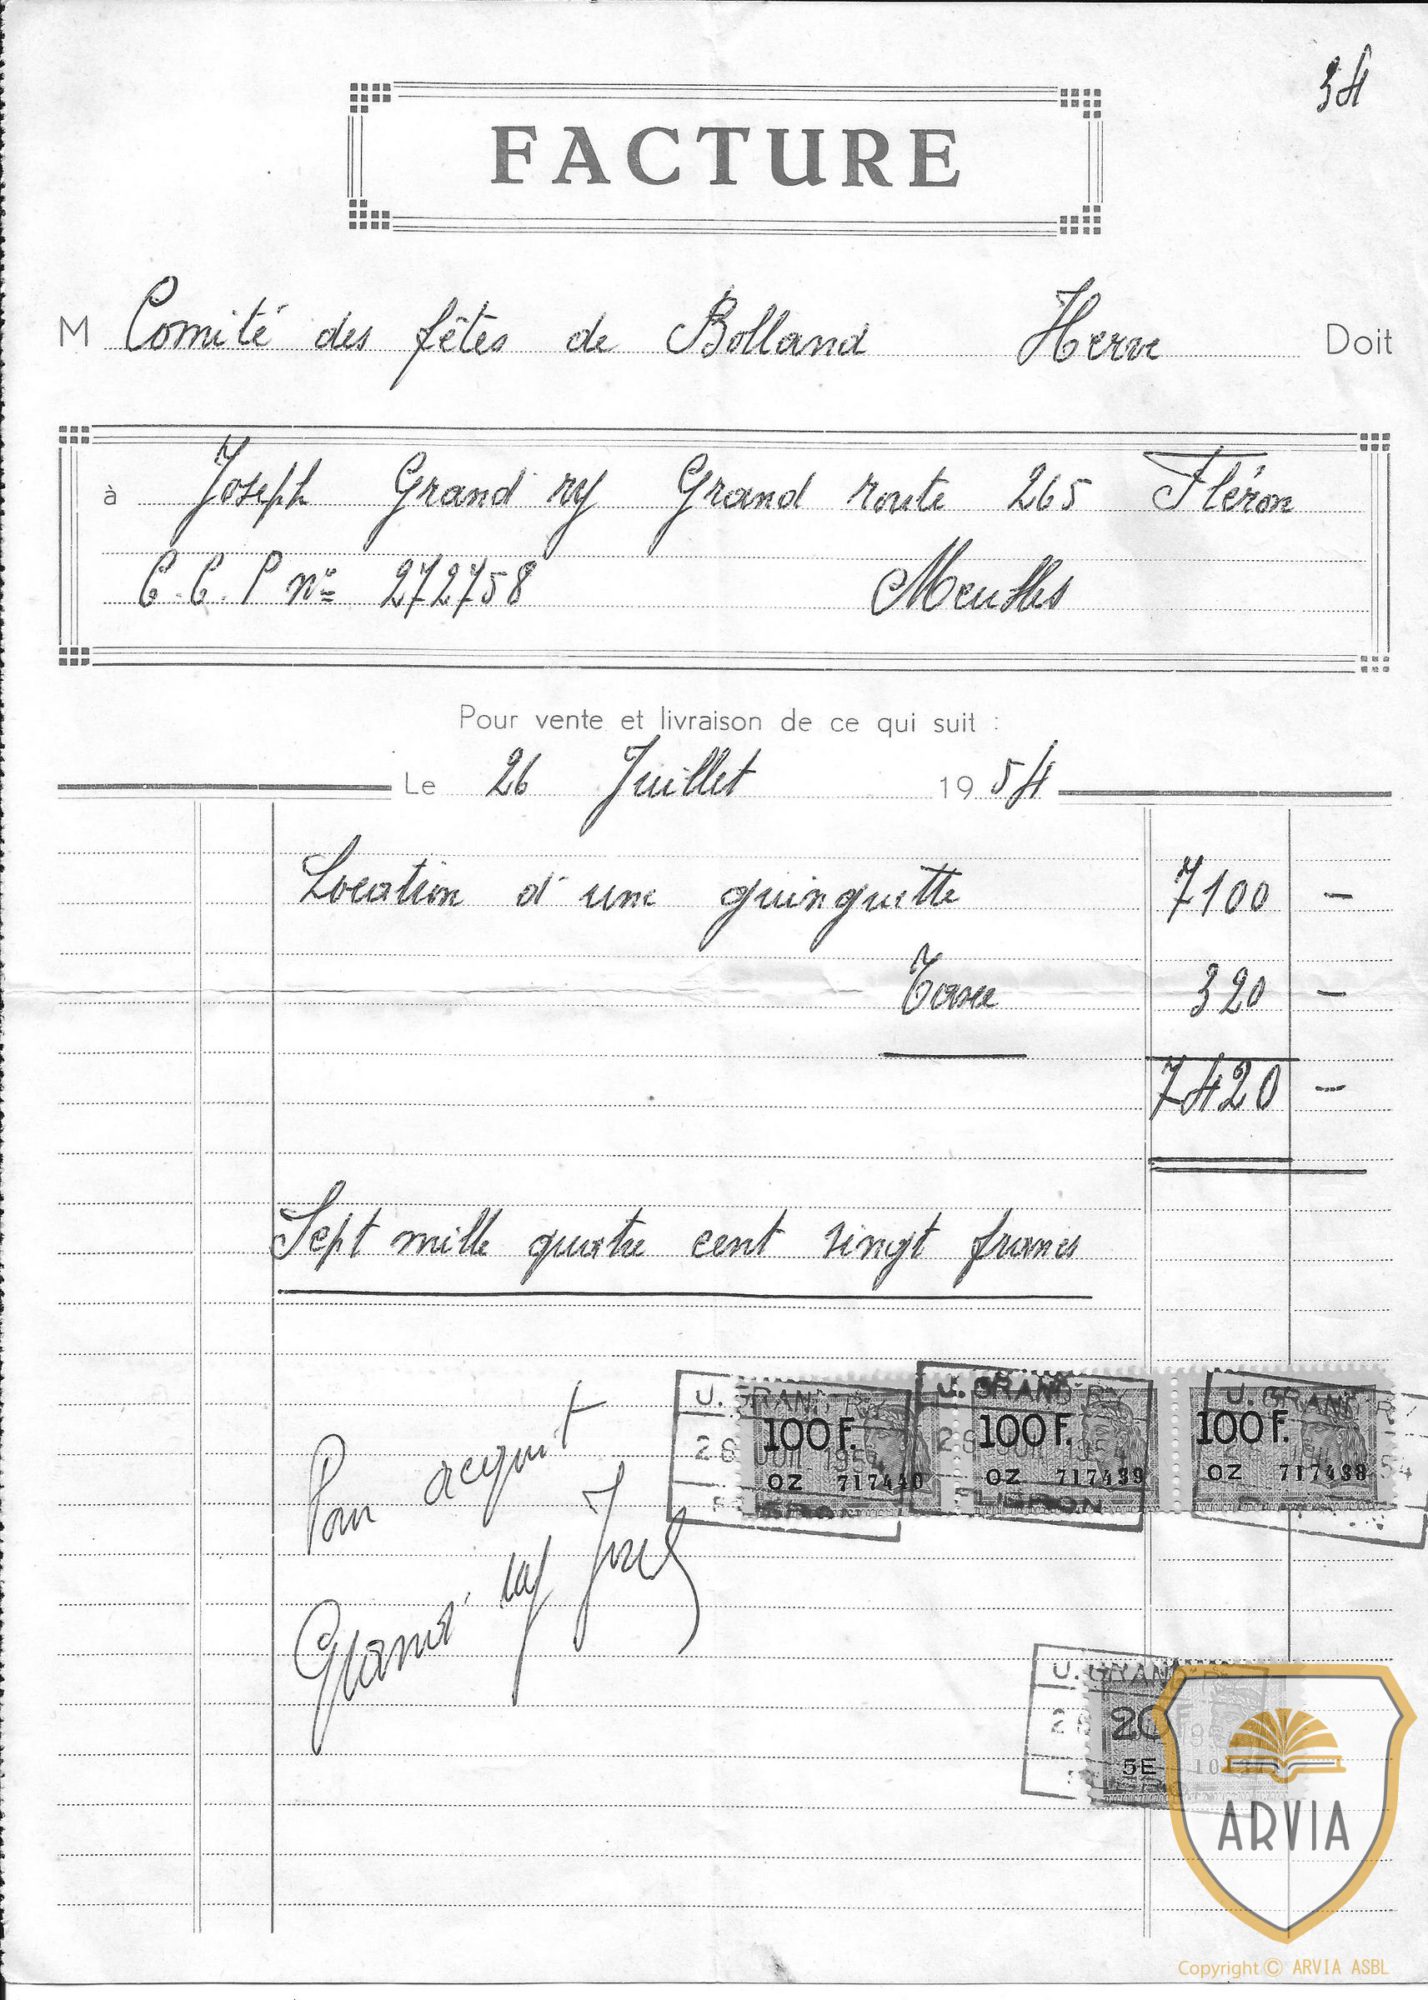 34
FACTURE
M Comité des fêtes de Bolland Herve Doit
à Joseph Grand'ry Grand route 265 Fléron
C.C.P nº 272758 Meubles
Pour vente et livraison de ce qui suit :
Le 26 Juillet 1954
Location d'une guinguette 7100 -
Taxe 320 -
7420 -
Sept mille quatre cent vingt francs
J. GRAND'RY J. GRAND'RY J. GRAND'RY
100 F. 100 F. 100 F.
OZ 717440 OZ 717439 OZ 717438
FLERON
Pour acquit
Grand'ry Jos
J. GRAND
20
5E
ARVIA
Copyright © ARVIA ASBL